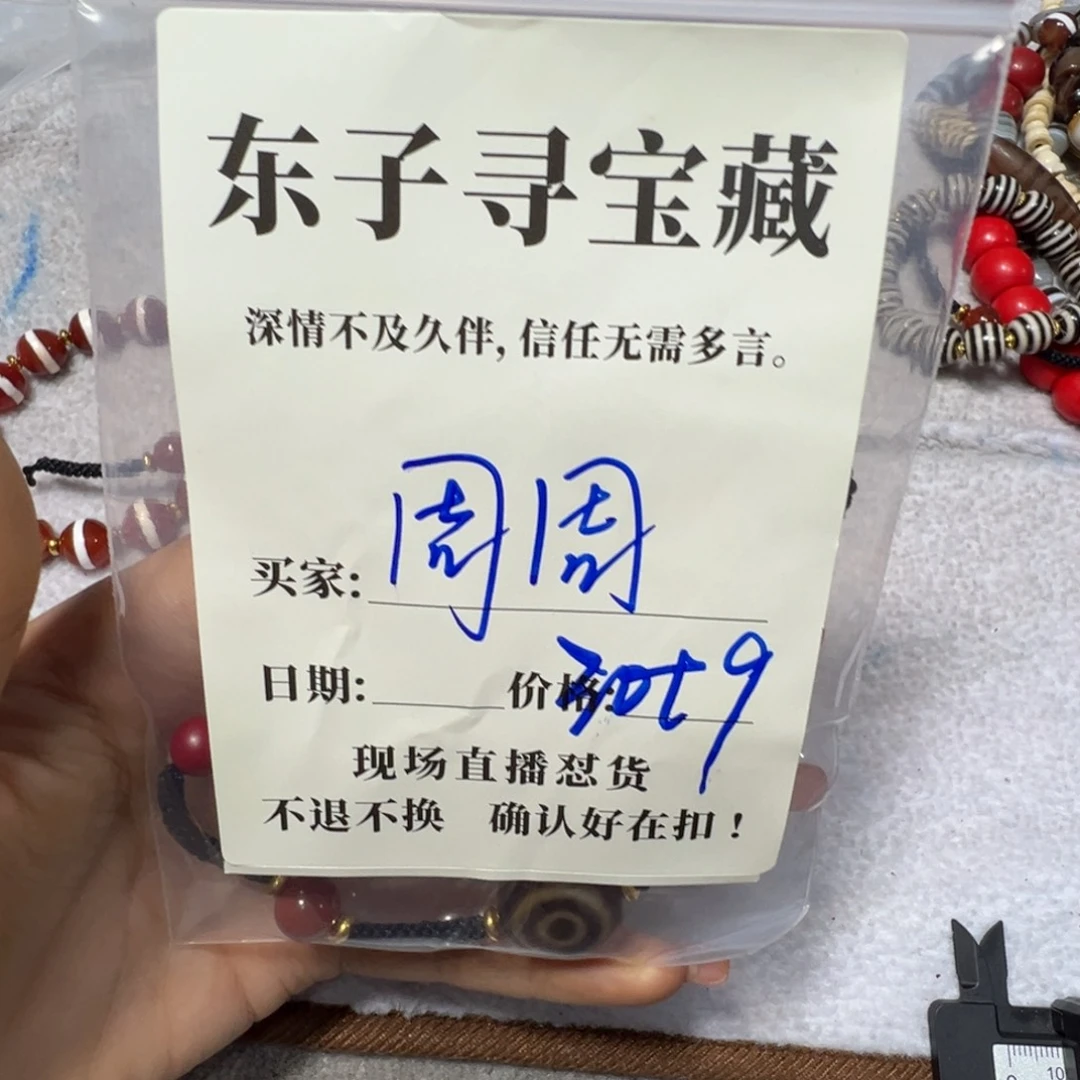 东子寻宝藏
深情不及久伴，信任无需多言。
买家：周周
日期： 价格：
现场直播怼货
不退不换 确认好在扣！
10